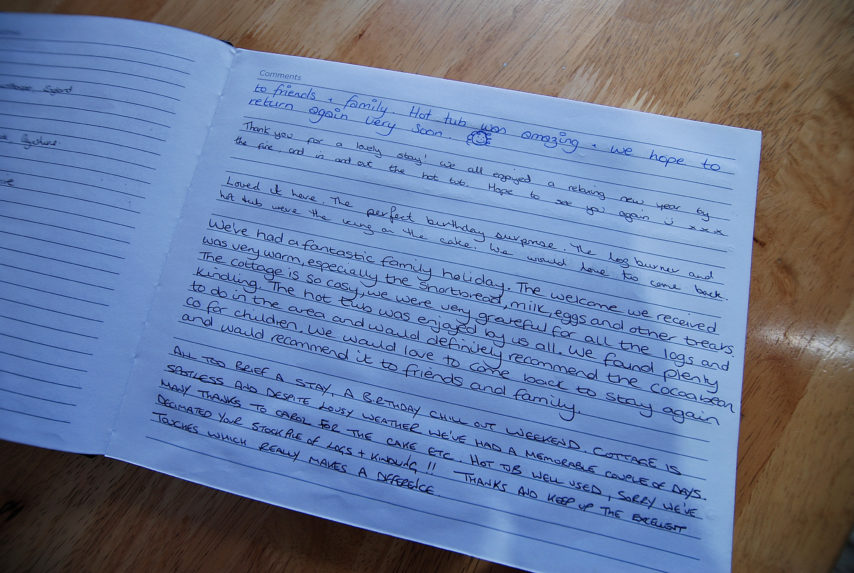 Comments
to friends + family. Hot tub was amazing + we hope to
return again very soon.
Thank you for a lovely stay! we all enjoyed a relaxing new year by
the fire, and in and out the hot tub. Hope to see you again xxx
Loved it here. The perfect birthday surprise. The log burner and
hot tub were the icing on the cake! We would love to come back.
We've had a fantastic family holiday. The welcome we received
was very warm, especially the shortbread, milk, eggs and other treats.
The cottage is so cosy, we were very grateful for all the logs and
kindling. The hot tub was enjoyed by us all. We found plenty
to do in the area and would definitely recommend the cocoabean
co for children. We would love to come back to stay again
and would recommend it to friends and family.
ALL TOO BRIEF A STAY, A BIRTHDAY CHILL OUT WEEKEND. COTTAGE IS
SPOTLESS AND DESPITE LOUSY WEATHER WE'VE HAD A MEMORABLE COUPLE OF DAYS.
MANY THANKS TO CAROL FOR THE CAKE ETC. HOT TUB WELL USED, SORRY WE'VE
DECIMATED YOUR STOCKPILE OF LOGS + KINDLING!! THANKS AND KEEP UP THE EXCELLENT
TOUCHES WHICH REALLY MAKES A DIFFERENCE.